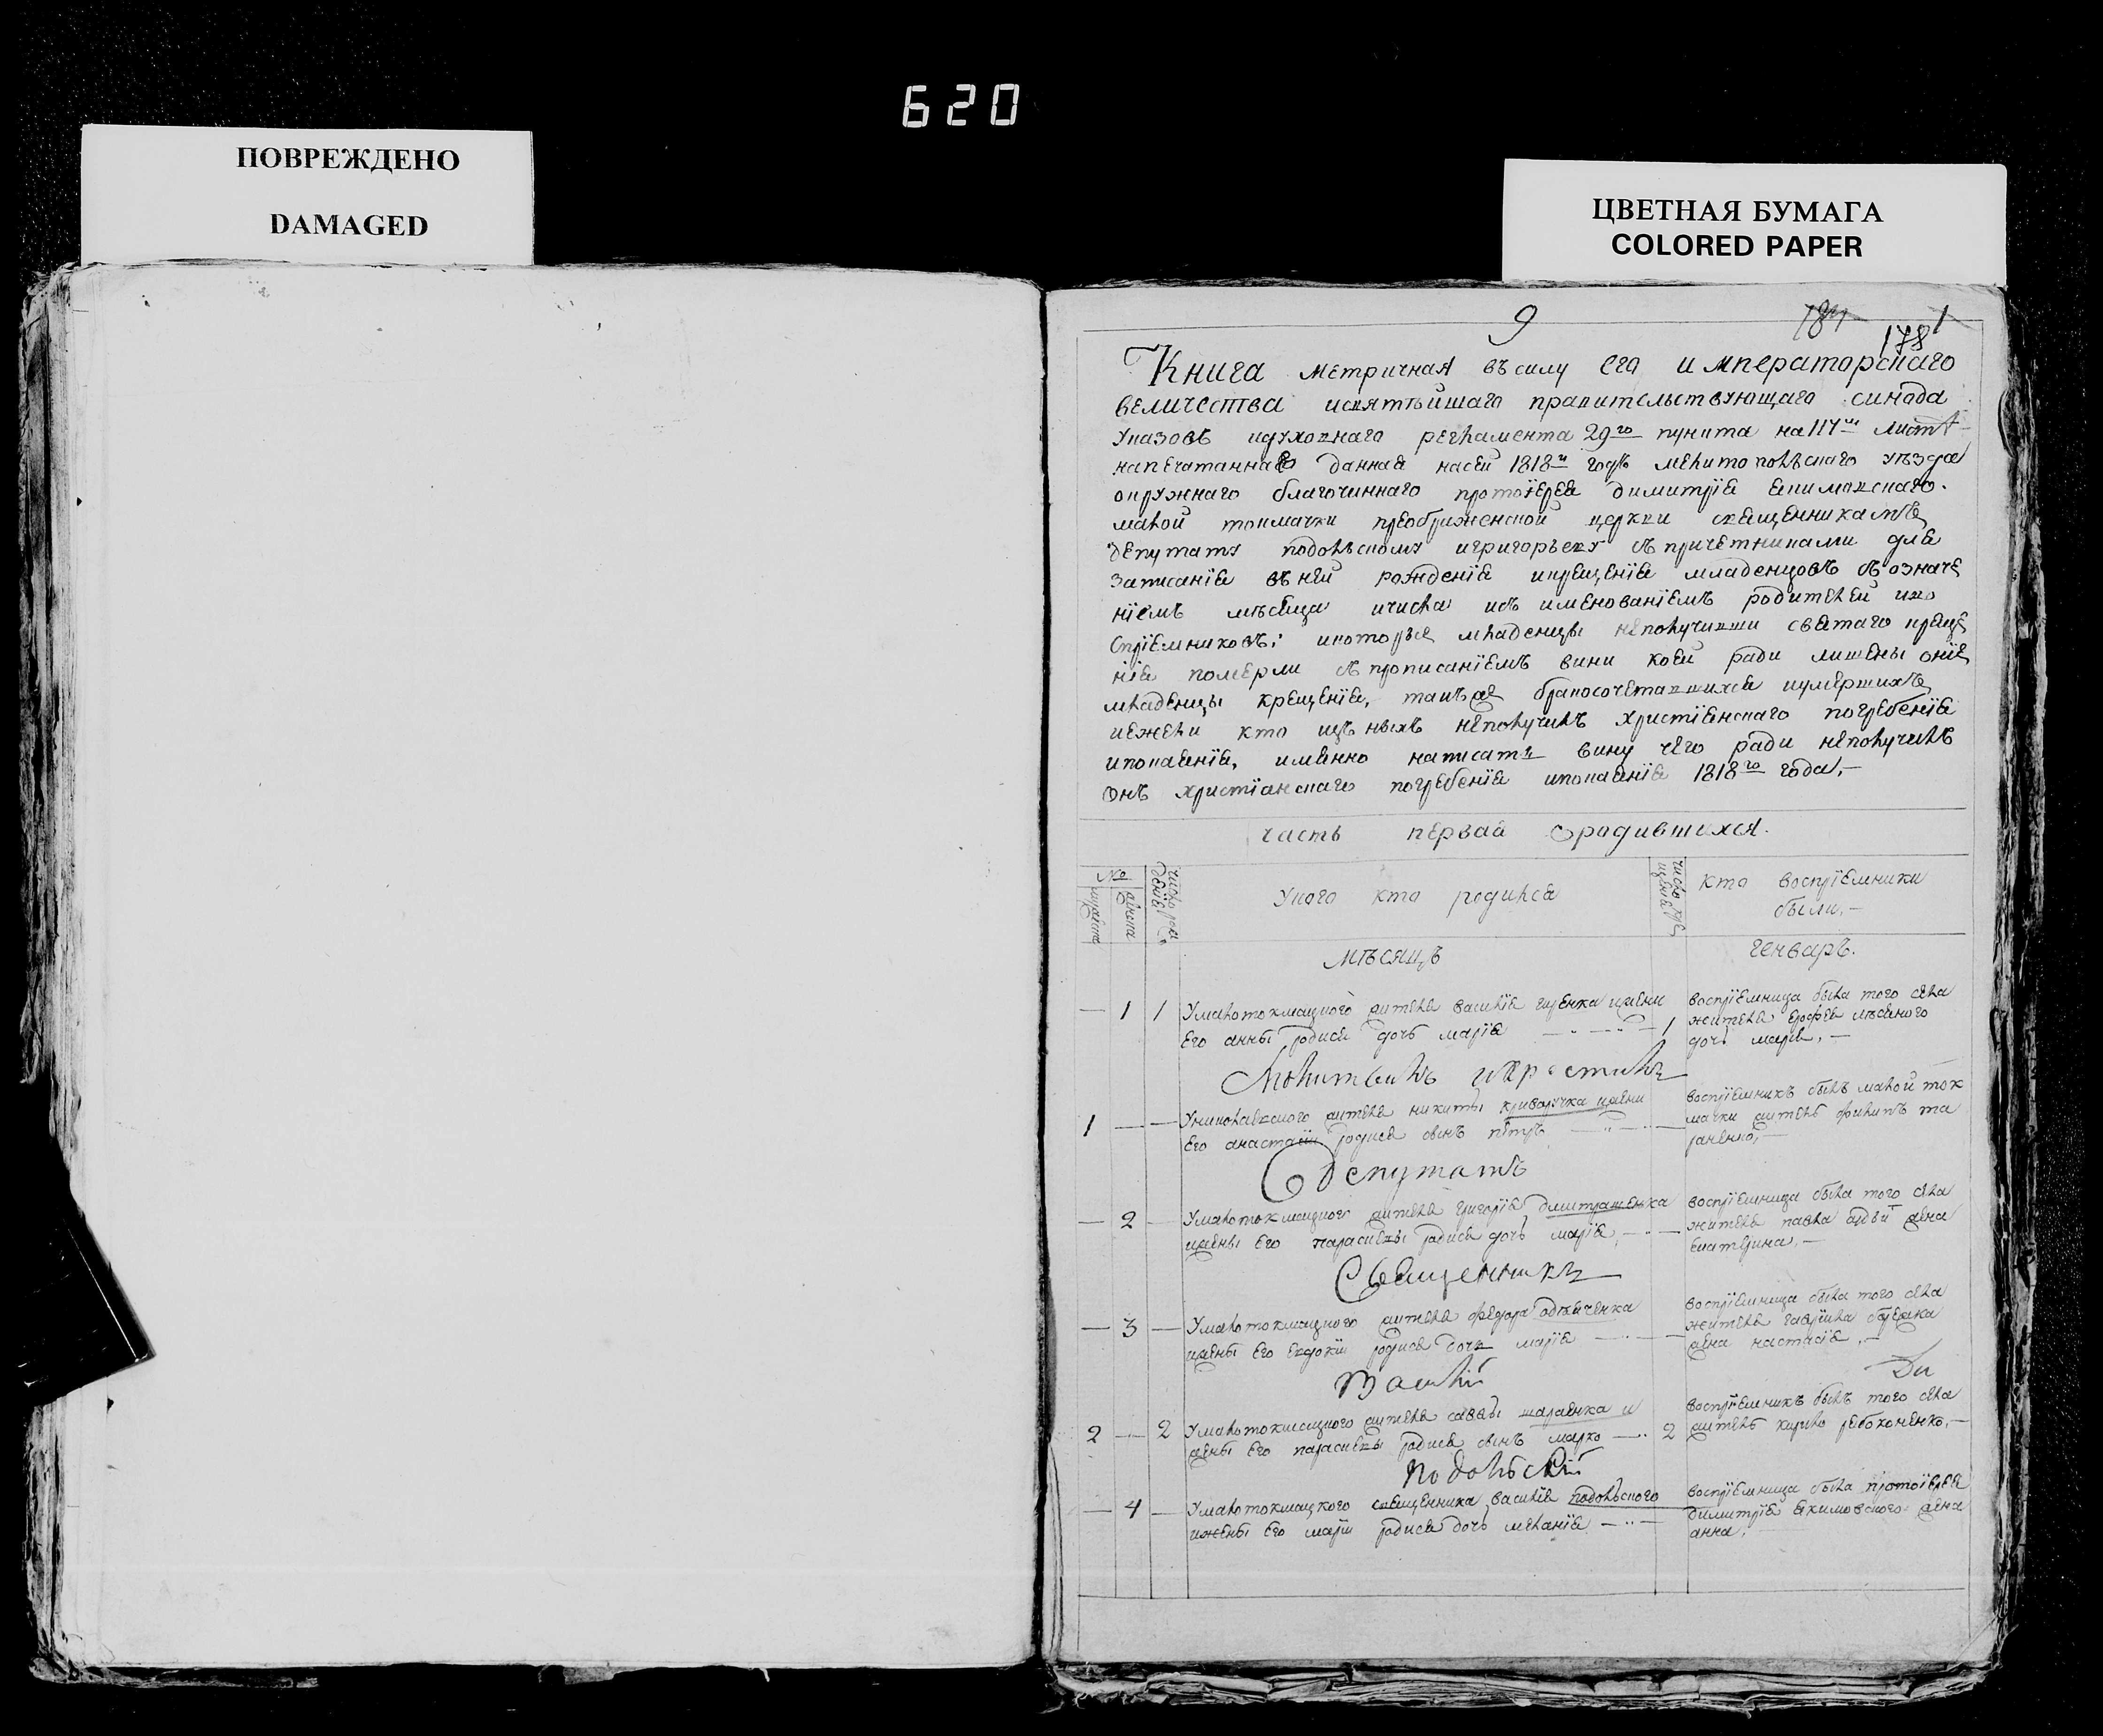 620
ПОВРЕЖДЕНО
DAMAGED
ЦВЕТНАЯ БУМАГА
COLORED PAPER
9
1
178
Книга метричная въ силу его императорскаго
величества и святѣйшаго правительствующаго синода
указовъ и духовнаго регламента 29го пункта на 117м листѣ
напечатаннаго данная на сей 1818й годъ мелитопольскаго уѣзда
окружнаго благочиннаго протоїерея димитрїя акимовскаго
малой токмачки преображенской церкви священникамъ
депутату подольскому и григорьеву съ причетниками для
записанїя въ ней рожденїя и крещенїя младенцовъ съ означе
нїемъ мѣсяца и числа и съ именованїемъ родителей и во
спрїемниковъ: и которые младенцы неполучивши святаго креще
нїя померли съ прописанїемъ вини коей ради лишены онїе
младенцы крещенїя, такъже бракосочетавшихся и умершихъ
и ежели кто изъ ныхъ неполучилъ христїянскаго погребенїя
и покаянїя, именно написать вину чего ради неполучилъ
онъ христїанскаго погребенїя и покаянїя 1818го года,—
часть первая о родившихся.
№
У кого кто родился
кто воспрїемники
были,—
мѣсяцъ
генварь.
— 1 1 У малотокмацкого жителя василїя гиренка и жени
его анны родися дочь марїя 1
воспрїемница была того села
жителя ерофея лѣсного
дочь марїя,—
Молитвилъ и крестилъ
1 — — жителя никиты криворучка и жени
его анастасїи родися сынъ петръ
воспрїемникъ былъ малой ток
мачки жителя филипъ та
раненко,—
Депутатъ
— 2 — У малотокмацкого жителя григорїя дмитрашенка
и жены его параскевы родися дочь марїя,—
воспрїемница была того села
жителя павла жена
екатерина,—
Священникъ
— 3 — У малотокмацкого жителя федора
и жены его евдокїи родися дочь марїя
воспрїемница была того села
жителя гаврїила
жена настасїя,—
Василїй
2 — 2 У малотокмацкого жителя саввы шараенка и
жены его параскевы родися сынъ марко 2
воспрїемникъ былъ того села
житель кирило рябоконенко,—
Подольскїй
— 4 — У малотокмацкого священника василїя подольского
и жены его марїи родися дочь меланїя
воспрїемница была протоїерея
димитрїя акимовского жена
анна,